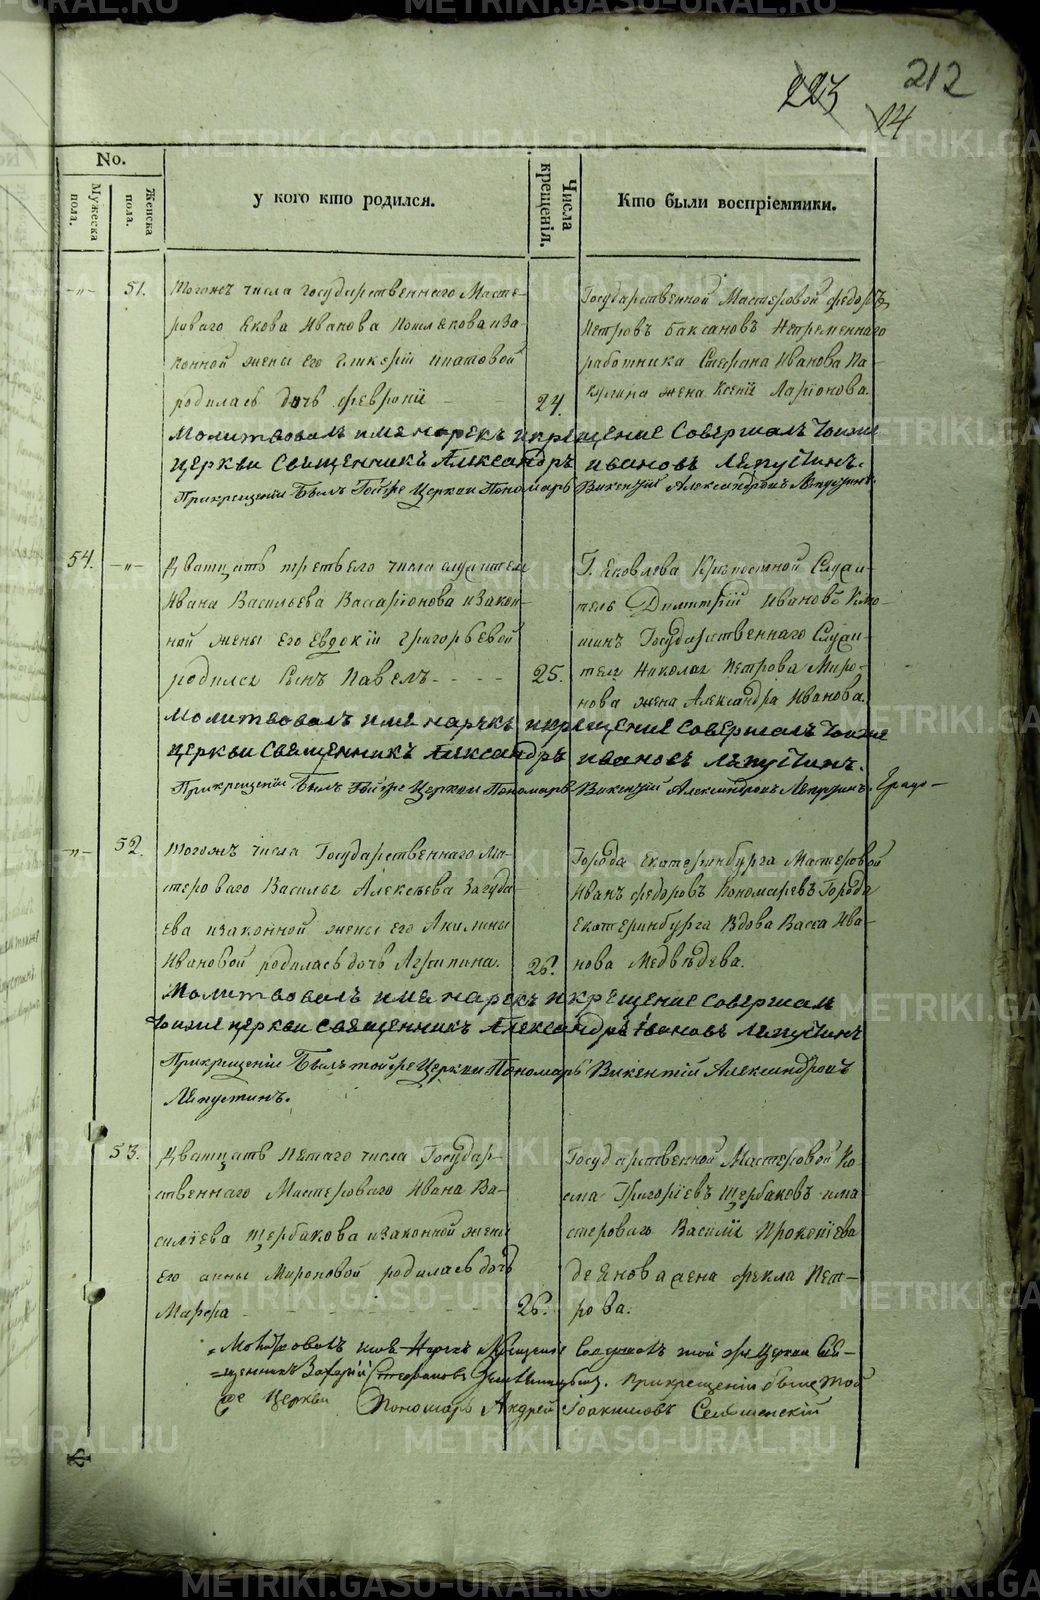 223
212
14
No.
Мужеска пола.
Женска пола.
у кого кто родился.
Числа крещенія.
Кто были воспріемники.
51.
Тогожъ числа Государственнаго Масте-
роваго Якова Иванова иза-
конной жены его Гликеріи Ипатовой
родилась дочь Февронія
24.
Государственной Мастеровой Федоръ
Петровъ Баксановъ Непременнаго
работника Стефана Иванова Па-
кулина жена Ксенія Ларіонова.
Молитвовалъ имя нарекъ и крещение совершалъ тоиже
церкви Священникъ Александръ Ивановъ Ляпустинъ.
При крещеніи былъ тойже Церкви Пономарь Викентій Александровъ Ляпустинъ.
54.
Дватцать третьего числа служителя
Ивана Васильева Вассаріонова и закон-
ной жены Его Евдокіи Григорьевой
родился Сынъ Павелъ
25.
Г. Яковлева Крѣпостной Служи-
тель Димитрій Ивановъ
Государственнаго Служи-
теля Николая Петрова Миро-
нова жена Александра Иванова.
Молитвовалъ имя нарекъ и крещение совершалъ тоиже
церкви Священникъ Александръ Ивановъ Ляпустинъ.
При крещеніи былъ тойже Церкви Пономарь Викентій Александровъ Ляпустинъ.
52.
Тогожъ числа Государственнаго Ма-
стероваго Василья Алексѣева Загуда-
ева и законной жены его Акилины
Ивановой родилась дочь Агрипина.
26.
Города Екатеринбурга Мастеровой
Иванъ Федоровъ Пономаревъ Города
Екатеринбурга Вдова Васса Ива-
нова Медвѣдева.
Молитвовалъ имя нарекъ и крещение совершалъ
тоиже церкви Священникъ Александръ Ивановъ Ляпустинъ
При крещеніи былъ тойже Церкви Пономарь Викентій Александровъ
Ляпустинъ.
53.
Дватцать пятаго числа Государ-
ственнаго Мастероваго Ивана Ва-
силіева Щербакова и законной жены
Его Анны Мироновой родилась дочь
Марфа
26.
Государственной Мастеровой Ко-
сма Григоріевъ Щербаковъ и ма-
стероваго Василія Прокопіева
Деянова жена Фекла Пет-
рова.
Молитвовалъ имя Нарекъ Крещеніе Совершалъ той же Церкви Свя-
щенникъ Захарій Стефановъ При крещеніи былъ той
же Церкви Пономарь Андрей Іоакимовъ
METRIKI.GASO-URAL.RU